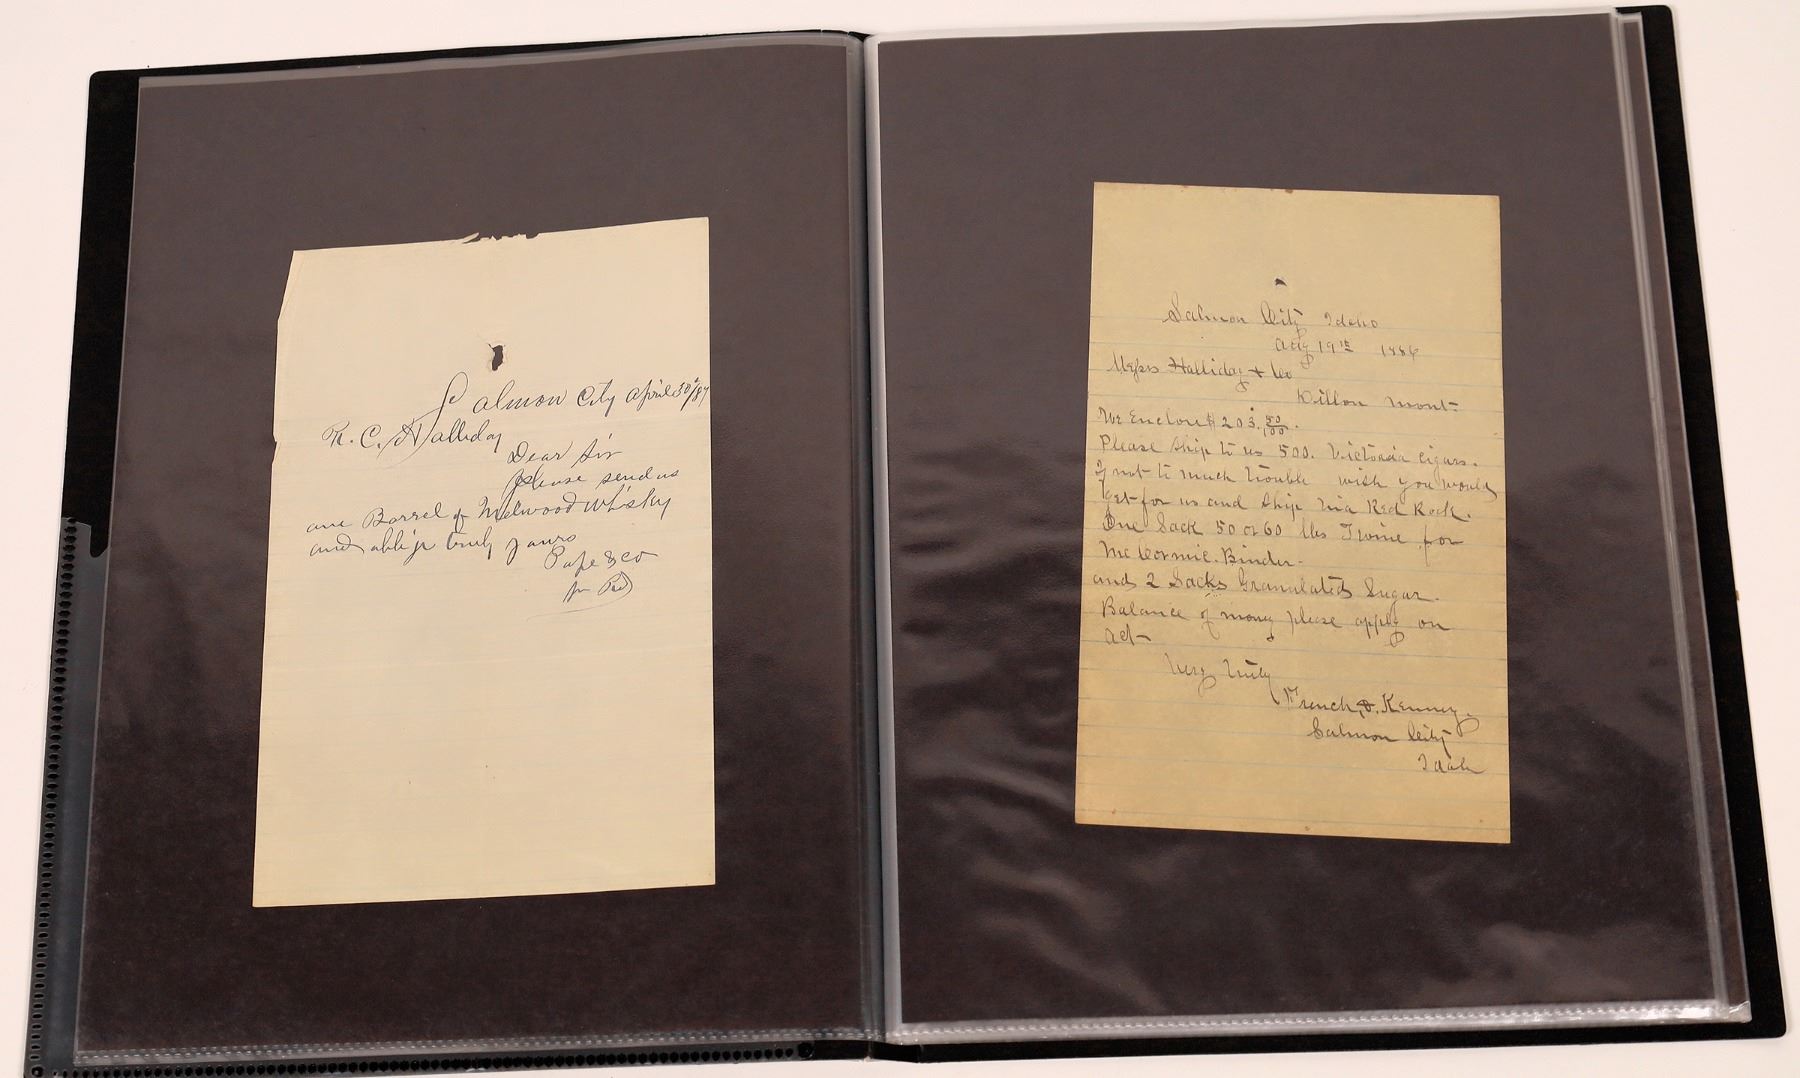 Salmon City April 30th/87
N. C. Halliday
Dear Sir
please send us
one Barrel of Melwood Whisky
and oblige truly yours
Pope & Co
Salmon City Idaho
Aug 19th 1886
Messrs Halliday & Co
Dillon Mont-
We Enclose $203.50/100.
Please ship to us 500. Victoria cigars.
If not to much trouble wish you would
get for us and ship via Red Rock.
One Sack 50 or 60 lbs Twine for
McCormic. Binder.
and 2 Sacks Granulated Sugar.
Balance of money please apply on
act-
Very Truly
French, & Kenney.
Salmon City
Idaho